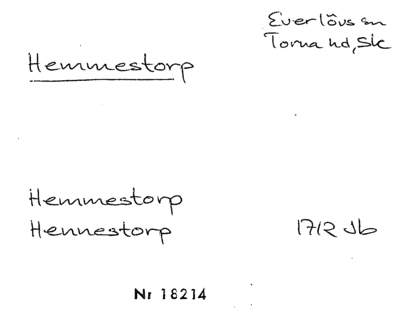 Everlövs sn
Torna hd, Sk
Hemmestorp
Hemmestorp
Hennestorp 1712 Jb
Nr 18214